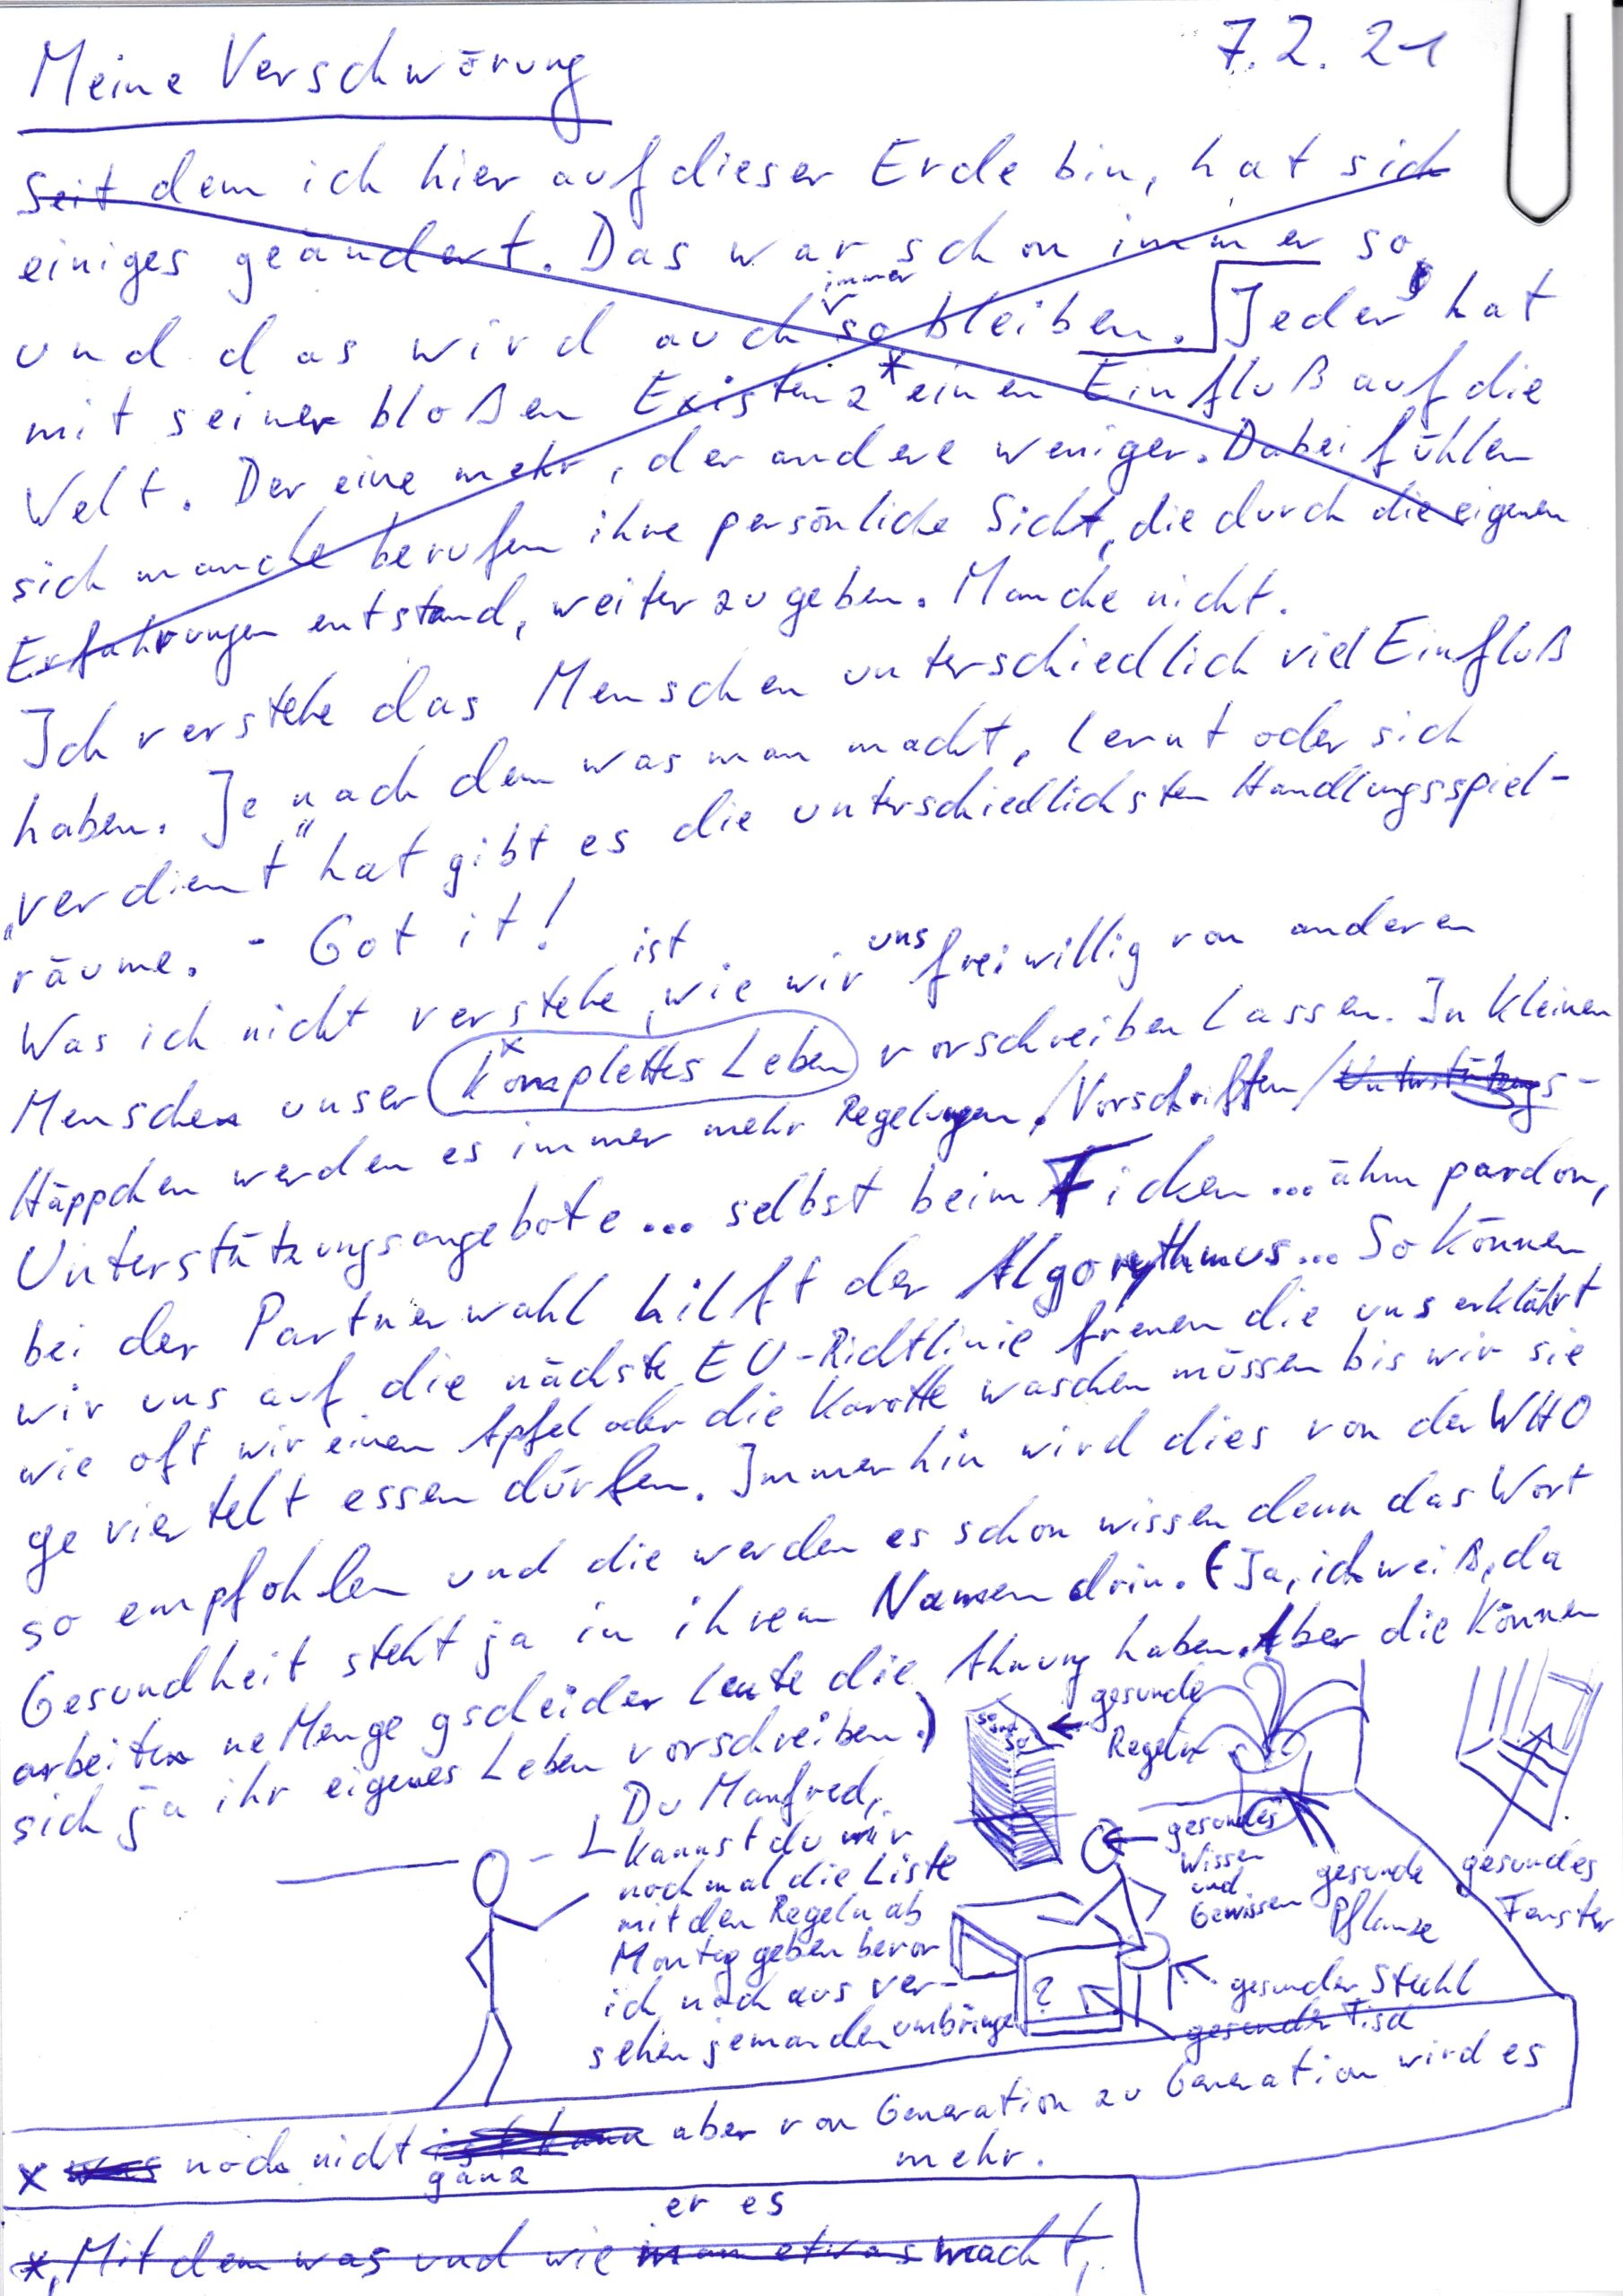 Meine Verschwörung
7.2.21
Seit dem ich hier auf dieser Erde bin, hat sich
einiges geändert. Das war schon immer so,
und das wird auch immer so bleiben. Jeder hat
mit seiner bloßen Existenz* einen Einfluß auf die
Welt. Der eine mehr, der andere weniger. Dabei fühlen
sich manche berufen ihre persönliche Sicht, die durch die eigenen
Erfahrungen entstand, weiter zu geben. Manche nicht.
Ich verstehe das Menschen unterschiedlich viel Einfluß
haben. Je nach dem was man macht, lernt oder sich
"verdient" hat gibt es die unterschiedlichsten Handlungsspiel-
räume. - Got it!
Was ich nicht verstehe, ist wie wir uns freiwillig von anderen
Menschen unser komplettes Leben x vorschreiben lassen. In kleinen
Häppchen werden es immer mehr Regelungen/Vorschriften/Unterstützungs-
Unterstützungsangebote... selbst beim Ficken... ähm pardon,
bei der Partnerwahl hilft der Algorythmus... So können
wir uns auf die nächste EU-Richtlinie freuen die uns erklährt
wie oft wir einen Apfel oder die Karotte waschen müssen bis wir sie
geviertelt essen dürfen. Immerhin wird dies von der WHO
so empfohlen und die werden es schon wissen denn das Wort
Gesundheit steht ja in ihrem Namen drin. (Ja, ich weiß, da
arbeiten ne Menge gscheider Leute die Ahnung haben. Aber die können
sich ja ihr eigenes Leben vorschreiben.)
so und so
gesunde
Regeln
Du Manfred,
kannst du mir
nochmal die Liste
mit den Regeln ab
Montag geben bevor
ich noch aus ver-
sehen jemanden umbringe
gesundes
Wissen
und
Gewissen
gesunde
Pflanze
gesundes
Fenster
gesunder Stuhl
gesunder Tisch
?
x was noch nicht ganz aber von Generation zu Generation wird es
mehr.
*, Mit dem was und wie er es man etwas macht,